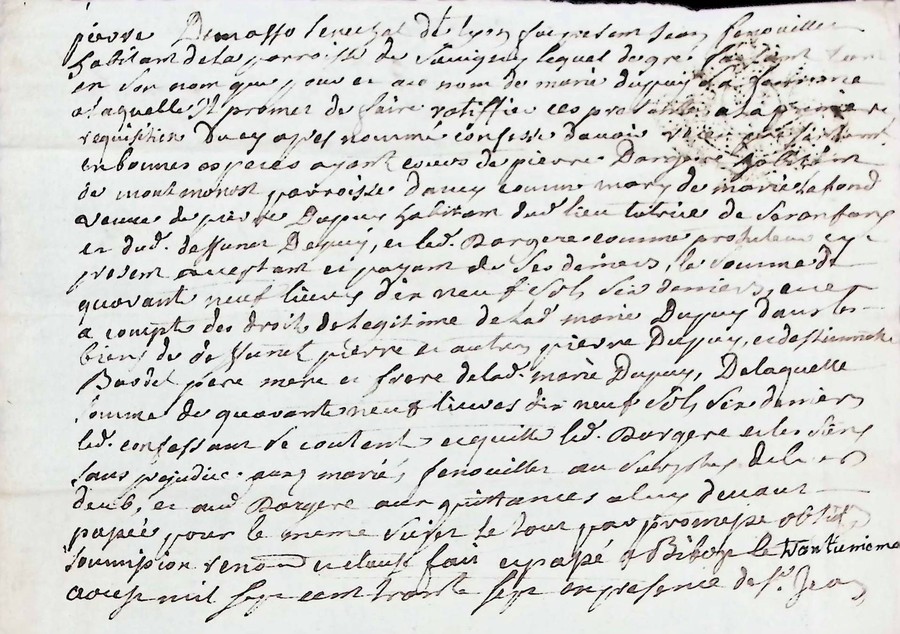 pierre Demasso senechal de lyon fut present Jean fenouillet
habitant de la parroisse de lequel de gré
en son nom que pour et au nom de marie dupuy sa femme
a laquelle Il promet de faire ratiffier ces presentes a la premiere
requisition Du cy apres nommé confesse d'avoir
en bonnes especes ayant cours de pierre Bargere habitant
de montmenot parroisse d'avey comme mary de marie lafond
veuve de pierre Dupuy habitant dud. lieu tutrice de ses enfans
et dud. deffunct Dupuy, et led. Bargere comme protuteur cy
present acceptant et payant de ses deniers, la somme de
quarante neuf livres dix neuf sols six deniers, et ce
a compte des droit de legitime de lad. marie Dupuy dans les
biens de deffunct pierre et autre pierre Dupuy, et d'estiennette
Bardet pere mere et frere de lad. marie Dupuy, De laquelle
somme de quarante neuf livres dix neuf sols six deniers
led. confessant se contente et quitte led. Bargere et les siens
sans prejudice auxd mariés fenouillet au surplus de leur
deub, et aud Bargere aux quittances a luy devant
passées pour le meme sujet le tout par promesse oblig.
soumission renon et clause fait et passé a Bibost le trantunieme
aoust mil sept cent trante sept en presence de sr. Jean